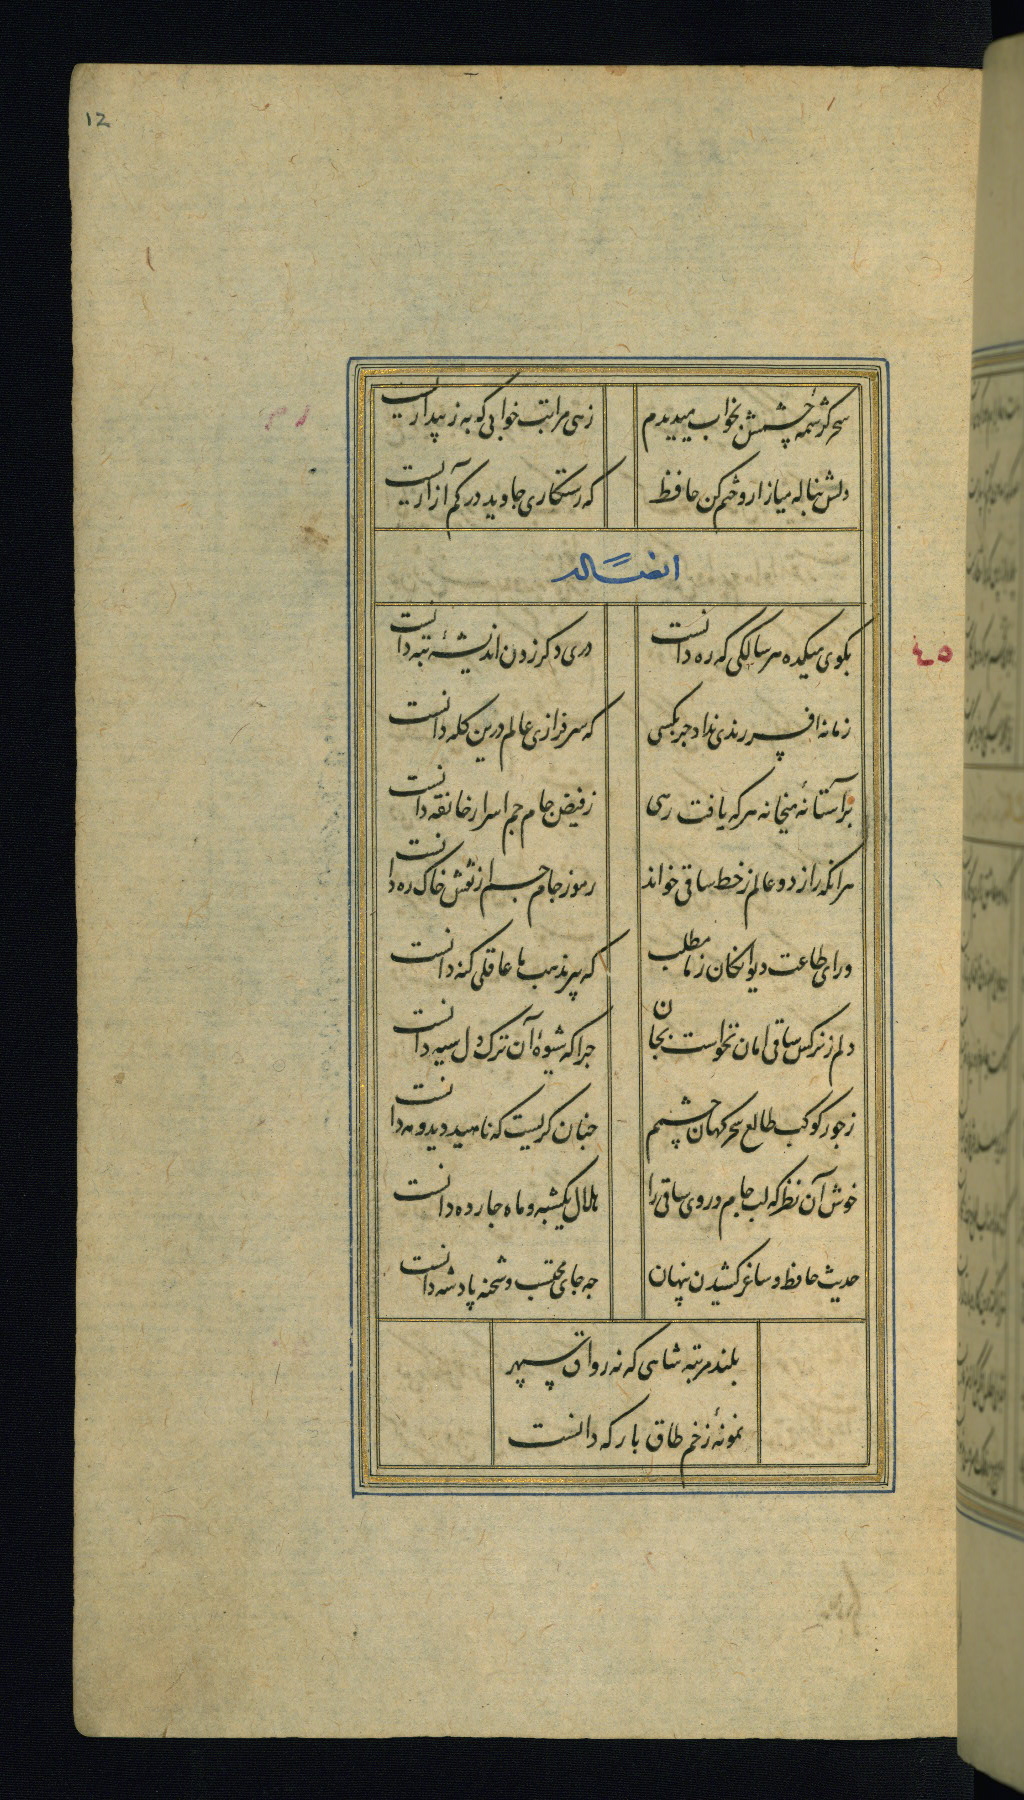 12
سحر کرشمه چشمش بخواب میدیدم زهی مراتب خوابی که به ز بیداریست
دلش بناله میازار و ختم کن حافظ که رستکاری جاوید در کم آزاریست
ایضاً له
۴۵
بکوی میکده هر سالکی که ره دانست دری دکر زدن اندیشهٔ تبه دانست
زمانه افسر رندی نداد جز بکسی که سرفرازی عالم درین کله دانست
بر آستانهٔ میخانه هر که یافت رهی ز فیض جام جم اسرار خانقه دانست
هر انکه راز دو عالم ز خط ساقی خواند رموز جام جم از نقش خاک ره دانست
ورای طاعت دیوانکان ز ما مطلب که پیر مذهب ما عاقلی کنه دانست
دلم ز نرکس ساقی امان نخواست بجان جرا که شیوهٔ آن ترک دل سیه دانست
ز جور کوکب طالع سحرکهان چشمم جنان کریست که ناهید دید و مه دانست
خوش آن نظر که لب جام و روی ساقی را هلال یکشبه و ماه جارده دانست
حدیث حافظ و ساغر کشیدن پنهان جه جای محتسب و شحنه پادشه دانست
بلند مرتبه شاهی که نه رواق سپهر
نمونهٔ ز خم طاق بارکه دانست